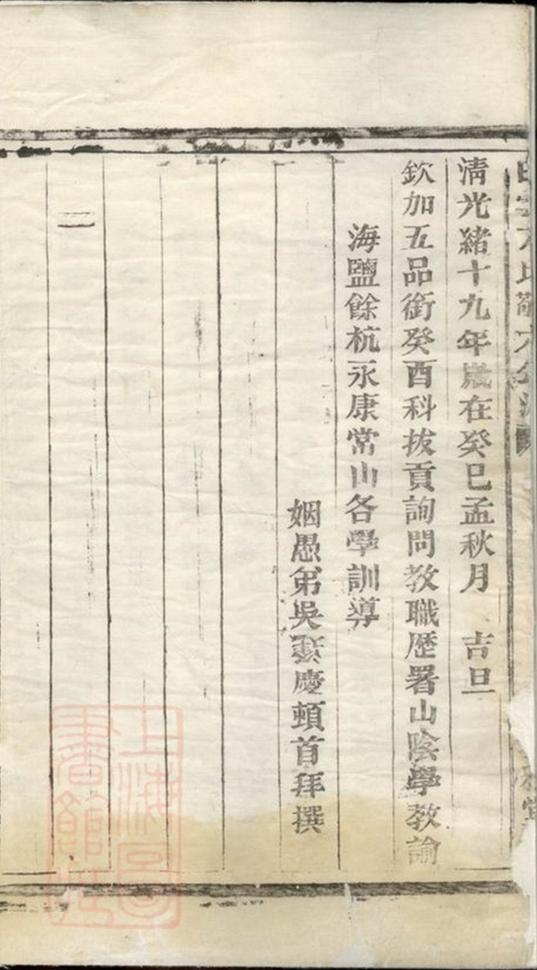 清光緒十九年歲在癸巳孟秋月　吉旦
欽加五品銜癸酉科拔貢詢問教職歷署山陰學教諭
海鹽餘杭永康常山各學訓導
姻愚弟吳慶頓首拜撰
二
上海圖書館藏